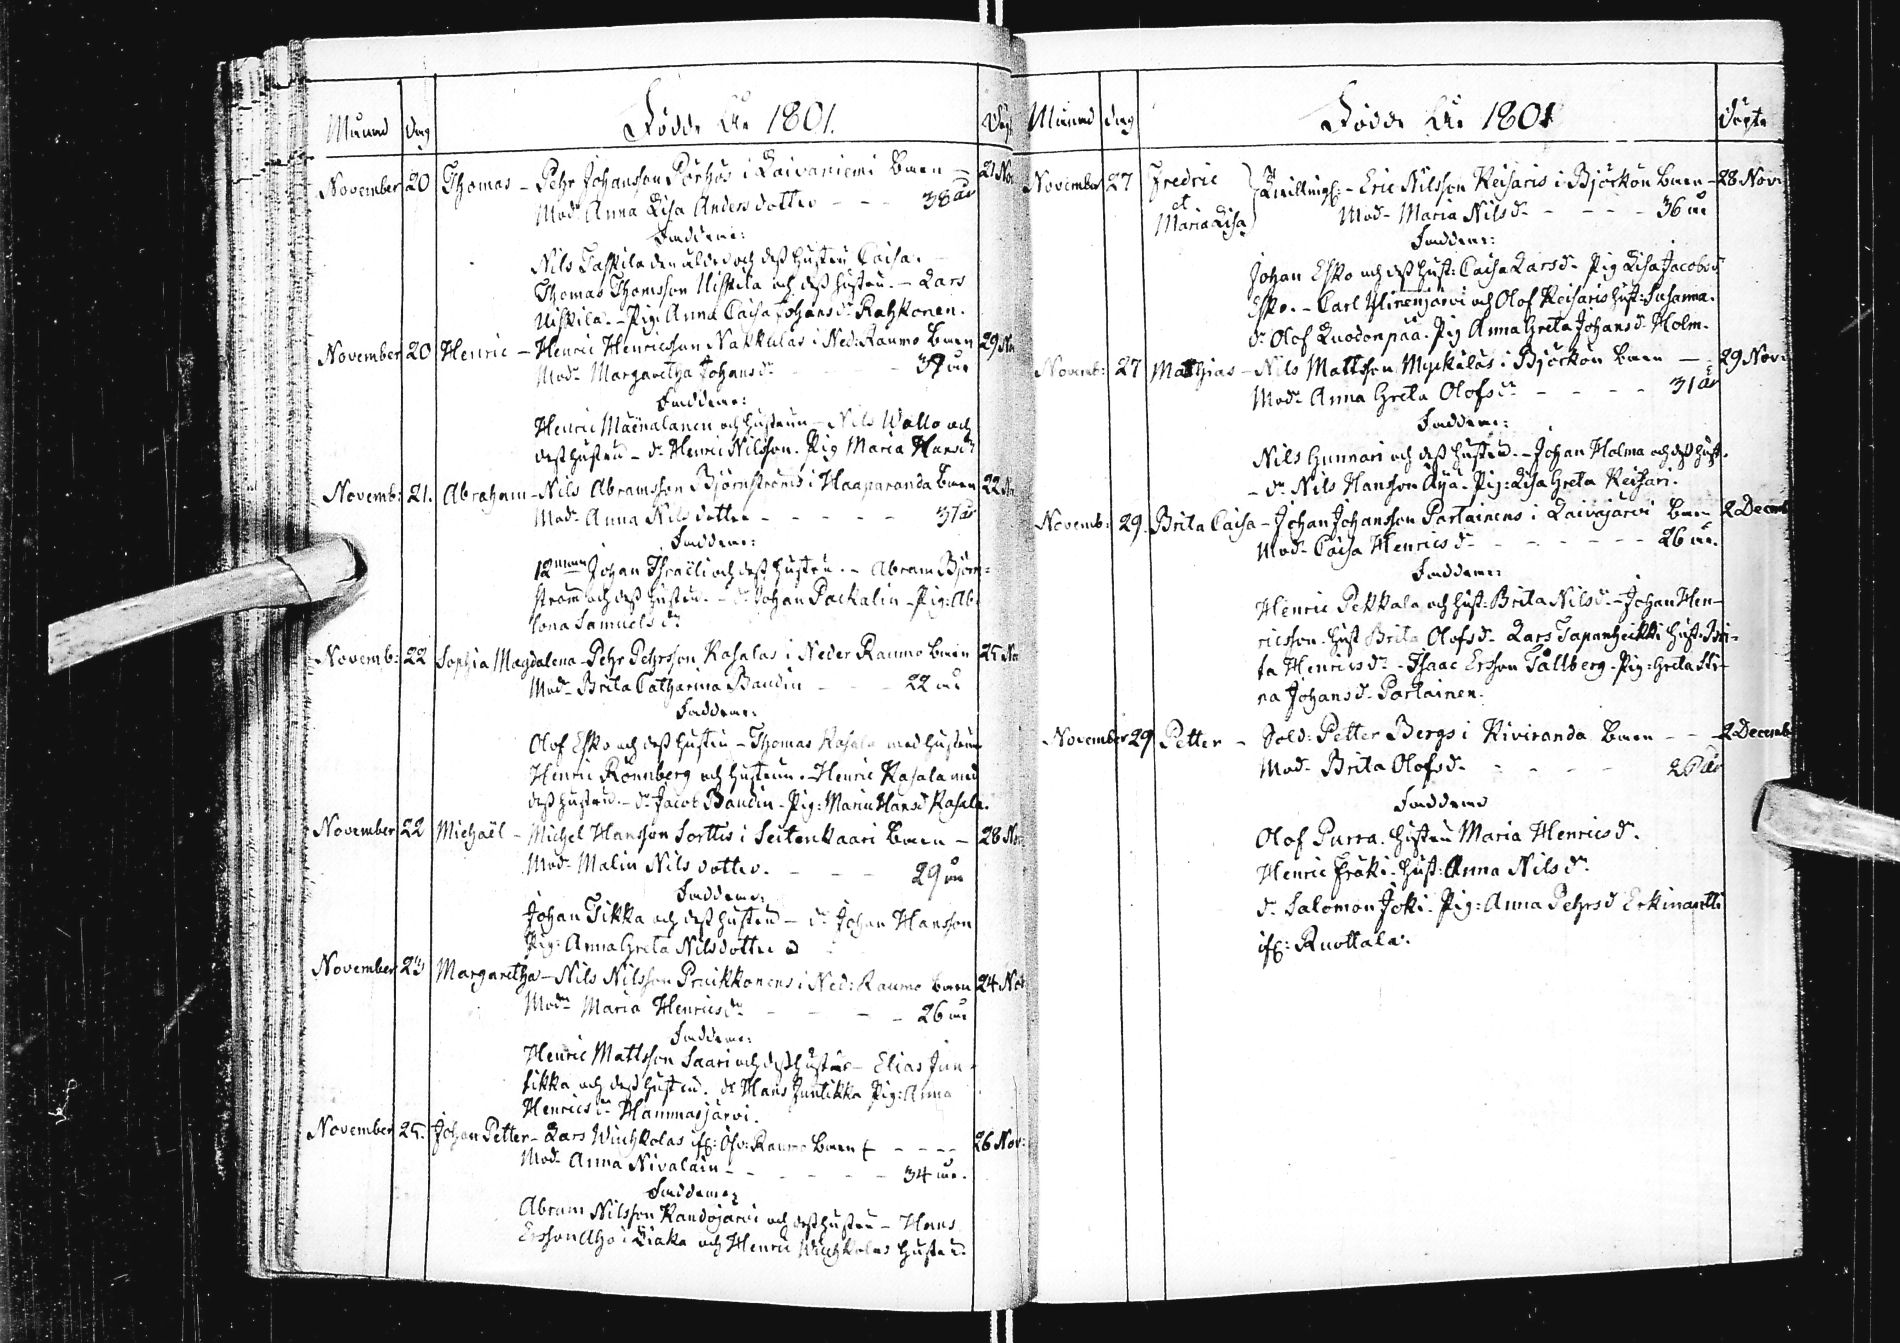 Månad dag Födde År 1801. Döpt
November 20 Thomas - Pehr Johansson Pörhös i Laivaniemi barn - 21 No
Modr Anna Lisa Anders dotter - - - 38 år
Faddrar:
Nils Taskila den äldre och dess hustru Caisa.
Thomas Thomsson Uiskila och dess hustru. - Lars
Uiskila. - Pig: Anna Caisa Johans dr Ratzkonen.
November 20 Henric - Henric Henricsson Nakkulas i Ned: Raumo barn 29 No
Modr Margaretha Johans dr - - - år
Faddrar:
Henric Mäenalanen och hustrun - Nils Wallo och
dess hustru - dr Henric Nilsson. Pig Maria Hans dr
Novemb: 21. Abraham - Nils Abramsson Björnströms i Haaparanda barn 22 No
Modr Anna Nils dotter - - - - - 37 år
Faddrar:
12 man Johan Israëli och dess hustru. - Abram Björn=
ström och dess hustru. - dr Johan Packalin - Pig: Ab:
lona Samuels dr
Novemb: 22 Sophia Magdalena - Pehr Pehrsson Kasalas i Neder Raumo barn 25 No
Modr Brita Catharina Baudin - - - 22 år
Faddrar:
Olof Esko och dess hustru - Thomas Kasala med hustrun
Henric Rönnberg och hustrun. - Henric Kasala med
dess hustru. - dr Jacob Baudin - Pig: Maria Hans d Kasala.
November 22 Michaël - Michel Hansson Sorttis i Seitenkaari barn - 28 No
Modr Malin Nils dotter. - - - 29 år
Faddrar:
Johan Isikka och dess hustru - dr Johan Hansson
Pig: Anna Greta Nilsdotter
November 23 Margaretha - Nils Nilsson Praikkonens i Ned: Raumo barn 24 Nov
Modr Maria Henrics dr - - - - 26 år
Faddrar:
Henric Mattsson Saari och dess hustru - Elias Jun-
tikka och dess hustru. dr Hans Juntikka Pig: Anna
Henrics dr Hammasjärvi.
November 25. Johan Petter - Lars Winkkolas if: Öfv: Raumo barn - - - - 26 Nov:
Modr Anna Nivalain - - - - - 34 år.
Faddrar
Abram Nilsson Kandojärvi och dess hustru - Hans
Ersson Aho i Liaka och Henric Winkkolas hustru.
Månad dag Födde År 1801 Döpte
November 27 Fredric et Maria Lisa Twillingr: - Eric Nilsson Keisaris i Björkön barn - 28 Nov:
Modr Maria Nils dr - - - - - 36 år
Faddrar:
Johan Esko och dess hust: Caisa Lars dr Pig Lisa Jacobs d
Esko. - Carl Ylinenjärvi och Olof Keisaris hust: Susanna.
dr Olof Luodonpää. Pig Anna Greta Johans dr Holm.
Novemb: 27 Matthias - Nils Mattsson Myckiläs i Björkön barn - 29 Nov:
Modr Anna Greta Olofs dr - - - - 31 år
Faddrar:
Nils Gunnari och dess hustru. - Johan Holma och dess hust.
- dr Nils Hansson Äijä. Pig: Lisa Greta Keisari.
Novemb: 29. Brita Caisa - Johan Johansson Partainens i Laivajärvi barn 2 Decemb
Modr Caisa Henrics dr - - - - - 26 år.
Faddrar
Henric Pekkala och hust: Brita Nils dr - Johan Hen-
ricsson. hust Brita Olofs dr Lars Tapanheikki hust: Bri-
ta Henrics dr - Isaac Ersson Tållberg - Pig: Greta Sti-
na Johans dr Partainen.
November 29 Petter - Sold: Petter Bergs i Kiviranda barn - - 2 Decemb
Modr Brita Olofs dr - - - - 26 år
Faddrar
Olof Purra. hustru Maria Henrics dr
Henric Fräki. hust: Anna Nils dr
dr Salomon Joki. Pig: Anna Pehrs d Erkinantti
if: Ruottala.